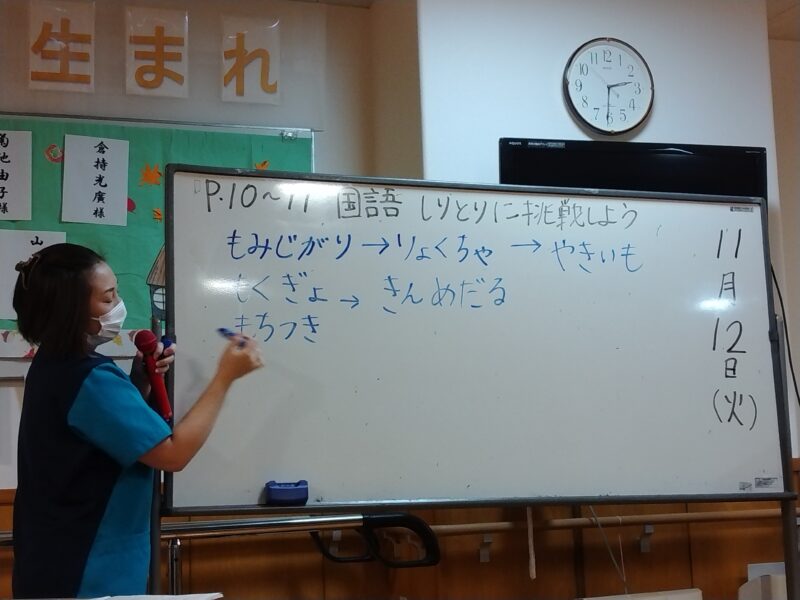 生まれ
倉持光廣様
P.10～11 国語 しりとりに挑戦しよう
もみじがり→りょくちゃ→やきいも
もくぎょ→きんめだる
もちつき
11月12日(火)
12
1
2
3
4
5
6
7
8
9
10
11